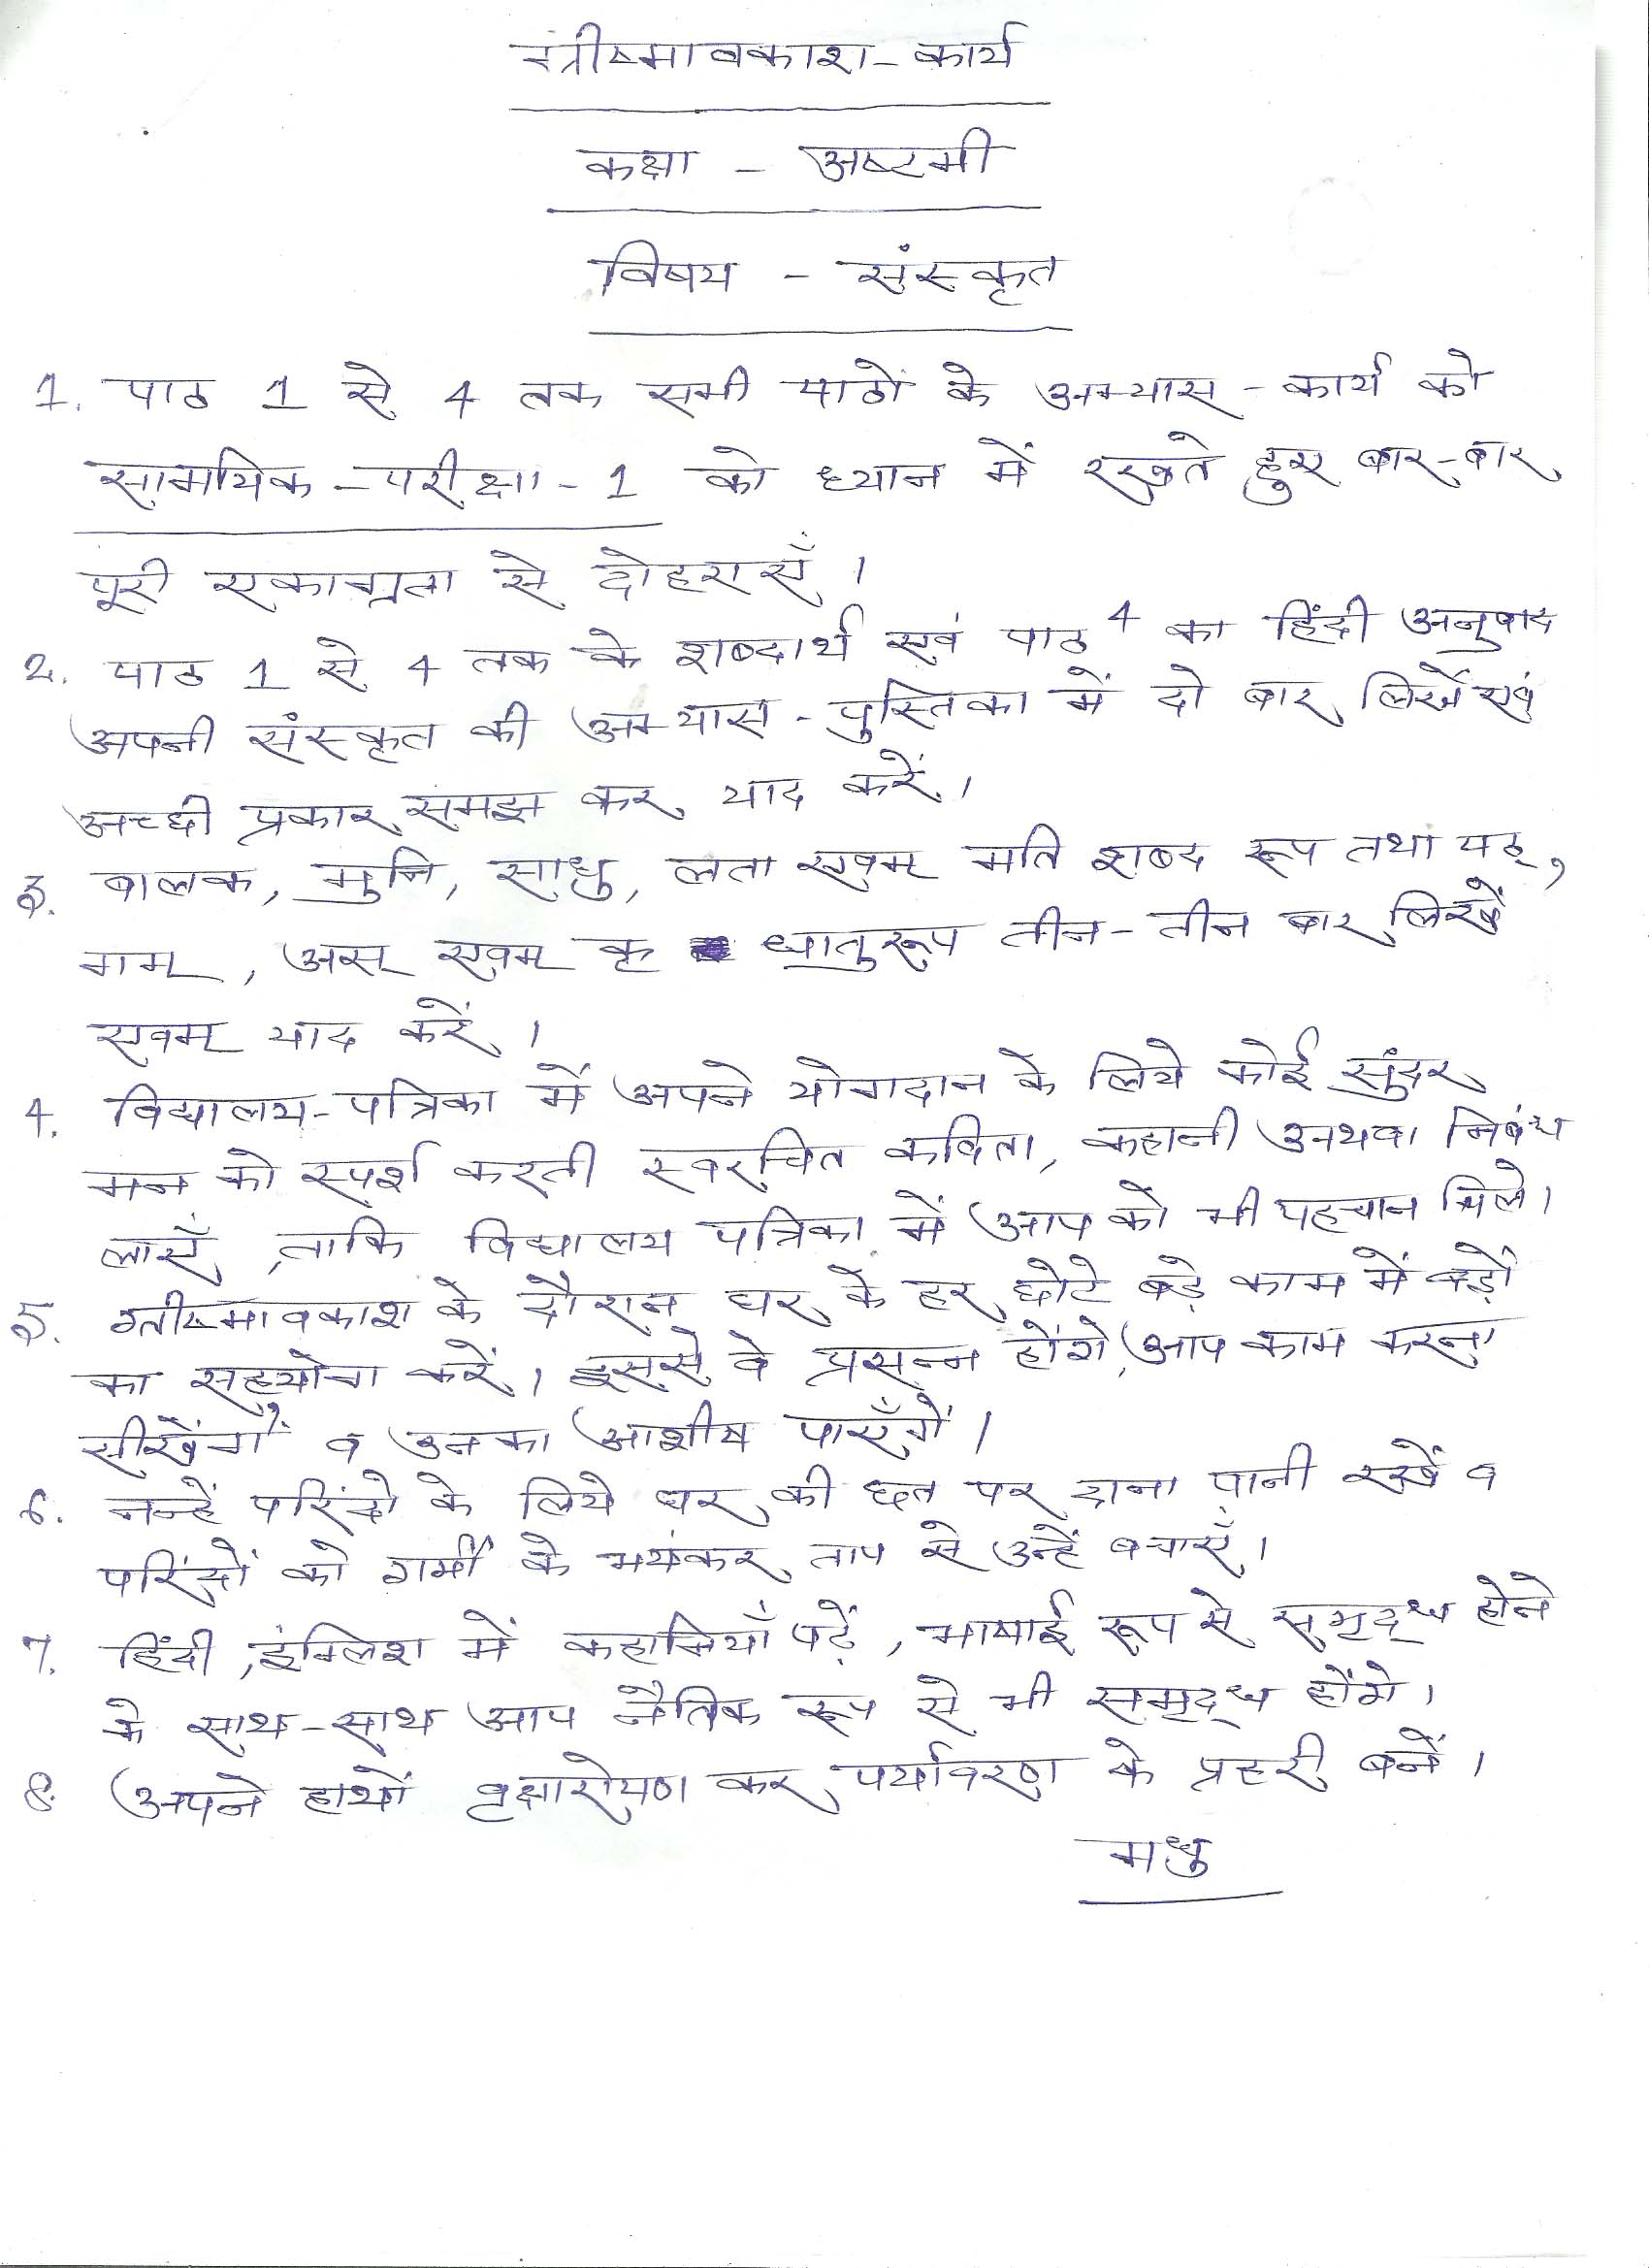 ग्रीष्मावकाश-कार्य
कक्षा - अष्टमी
विषय - संस्कृत
1. पाठ 1 से 4 तक सभी पाठों के अभ्यास-कार्य को
सामयिक-परीक्षा-1 को ध्यान में रखते हुए बार-बार
पूरी एकाग्रता से दोहराएँ।
2. पाठ 1 से 4 तक के शब्दार्थ एवं पाठ 4 का हिंदी अनुवाद
अपनी संस्कृत की अभ्यास-पुस्तिका में दो बार लिखें एवं
अच्छी प्रकार समझ कर याद करें।
3. बालक, मुनि, साधु, लता एवम् मति शब्द रूप तथा पठ्,
गम्, अस् एवम् कृ धातुरूप तीन-तीन बार लिखें
एवम् याद करें।
4. विद्यालय-पत्रिका में अपने योगदान के लिये कोई सुंदर
मन को स्पर्श करती स्वरचित कविता, कहानी अथवा निबंध
लाएँ, ताकि विद्यालय पत्रिका में आप को भी पहचान मिले।
5. ग्रीष्मावकाश के दौरान घर के हर छोटे बड़े काम में बड़ों
का सहयोग करें। इससे वे प्रसन्न होंगे, आप काम करना
सीखेंगे व उनका आशीष पाएँगें।
6. नन्हें परिंदो के लिये घर की छत पर दाना पानी रखें व
परिंदों को गर्मी के भयंकर ताप से उन्हें बचाएँ।
7. हिंदी, इंग्लिश में कहानियाँ पढ़ें, भाषाई रूप से समृद्ध होने
के साथ-साथ आप नैतिक रूप से भी समृद्ध होंगे।
8. अपने हाथों वृक्षारोपण कर पर्यावरण के प्रहरी बनें।
मधु